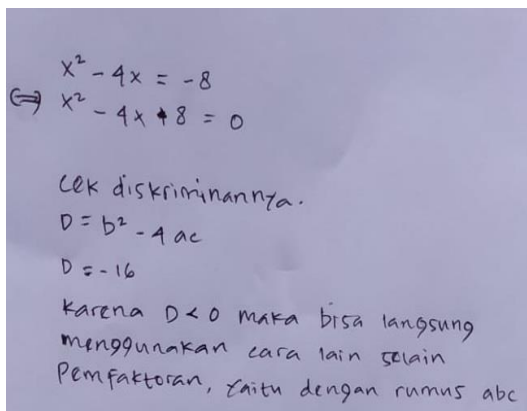 x² - 4x = -8
⇔ x² - 4x + 8 = 0
cek diskriminannya.
D = b² - 4ac
D = -16
Karena D < 0 maka bisa langsung
menggunakan cara lain selain
Pemfaktoran, yaitu dengan rumus abc